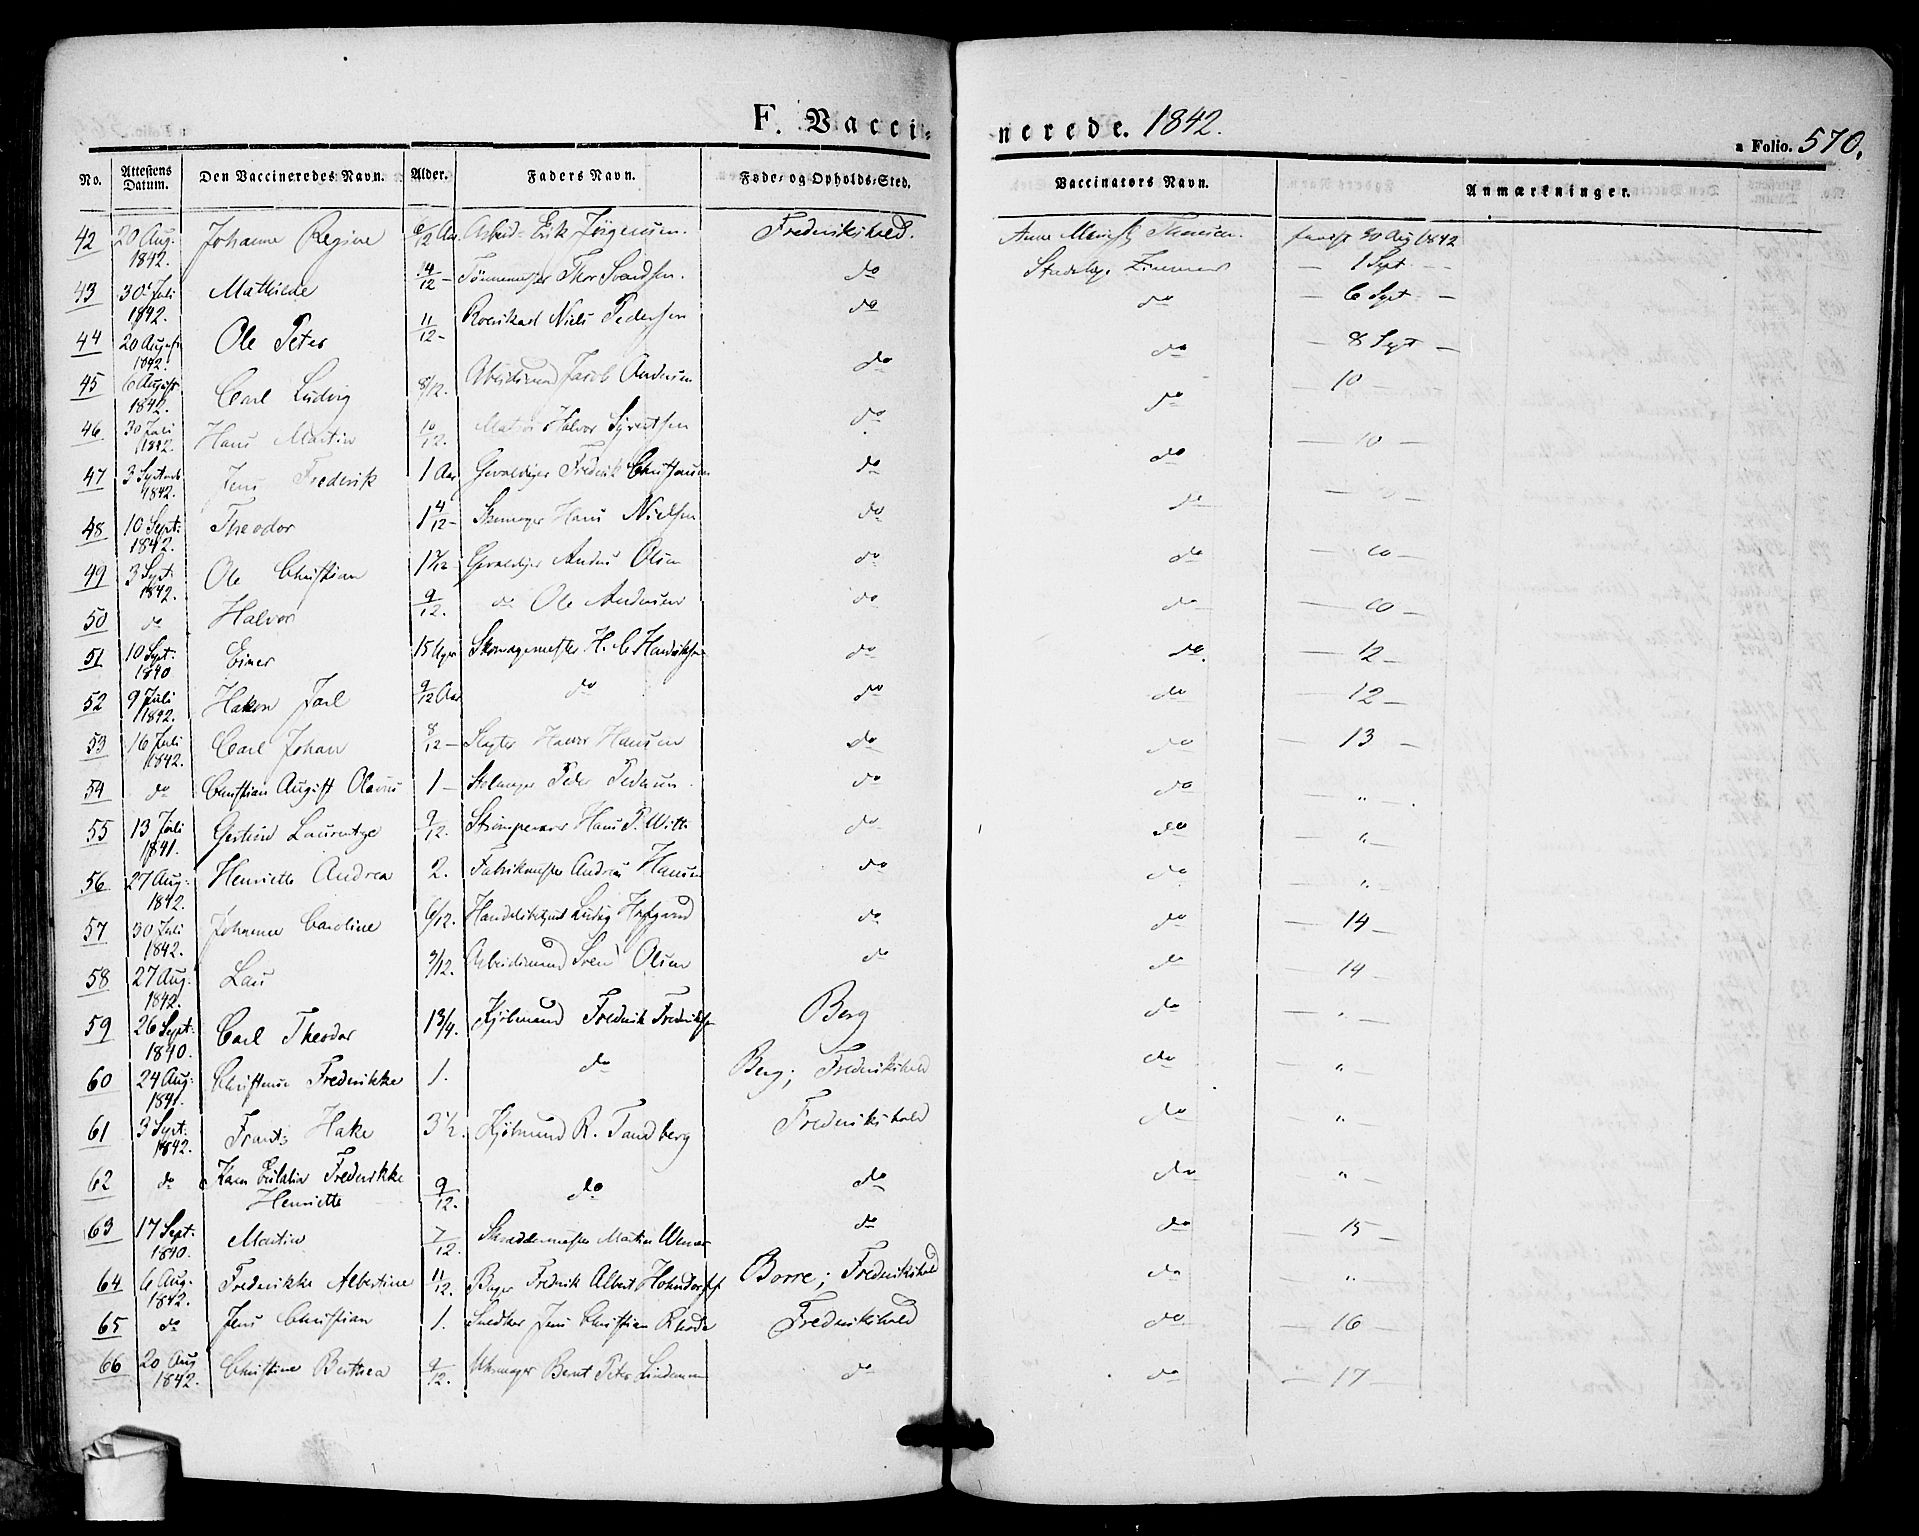 F. Vacci-
nerede. 1842.
a Folio. 570.
No. Attestens Datum. Den Vaccineredes Navn. Alder. Faders Navn. Føde- og Opholds-Sted. Vaccinators Navn. Anmærkninger.
42 20 Aug. 1842. Johanne Regine 6/12 Aar Arbeid- Erik Jörgensen Frederikshald. Anne 20 Aug 1842
43 30 Juli 1842. Mathilde 4/12 - Thor Svendsen. do Zimmer — 1 Sept. —
44 20 August 1842. Ole Peter 11/12 - Niels Pedersen do do — 6 Sept. —
45 6 August 1842. Carl Ludvig 8/12. Arbeidsmand Jacob Andersen do do — 8 Sept —
46 30 Juli 1842. Hans Martin 10/12. Halvor Syvertsen do. do — 10 —
47 3 Septemb 1842. Jens Frederik 1 Aar Gevaldiger Frederik Christiansen do do — 10 —
48 10 Sept: 1842. Theodor 1 4/12 - Hans Nielsen do do
49 3 Sept: 1842. Ole Christian Gevaldiger Anders Olsen do do — 10 —
50 do Halvor 9/12. do Ole Andersen do do — 10 —
51 10 Sept: 1840 Einer 15 Uger Skomagermester H. C. Hendriksen do do. — 12 —
52 9 Juli 1842. Hakon Jarl 9/12 Aar do do do — 12 —
53 16 Juli 1842. Carl Johan 8/12 - Slagter Halvor Hansen do do — 13 —
54 do Christian August Olavus 1 — Peder Pedersen do do — " —
55 13 Juli 1841. Laurentze 9/12. Hans P. Witt do do — " —
56 27 Aug: 1842. Henriette Andrea 2. Fabrikmester Andreas Hansen do do — " —
57 30 Juli 1842. Johanne Caroline 6/12. do do — 14 —
58 27 Aug: 1842. Lau 9/12. Arbeidsmand Sven Olsen do do — 14 —
59 26 Sept: 1840. Carl Theodor 1 3/4. Kjöbmand Frederik Frederiksen Berg do — " —
60 24 Aug: 1841. Christense Frederikke 1. do Berg; Frederikshald do — " —
61 3 Sept: 1842. Frants Hake 3 1/2. Kjöbmand R. Tandberg Frederikshald do — " —
62 do Karen Eulalia Frederikke Henriette 9/12. do do do — " —
63 17 Sept: 1840. Martin 7/12. Skreddermester Martin do do — 15 —
64 6 Aug: 1842. Frederikke Albertine 11/12. Bager Fredrik Albert Hohndorff Borre; Frederikshald do — " —
65 do Jens Christian 1. Snedker Jens Christian Rhode Frederikshald do — 16 —
66 20 Aug 1842. Christine Berthea 9/12. Uhrmager Bernt Peter Lindeman do do — 17 —